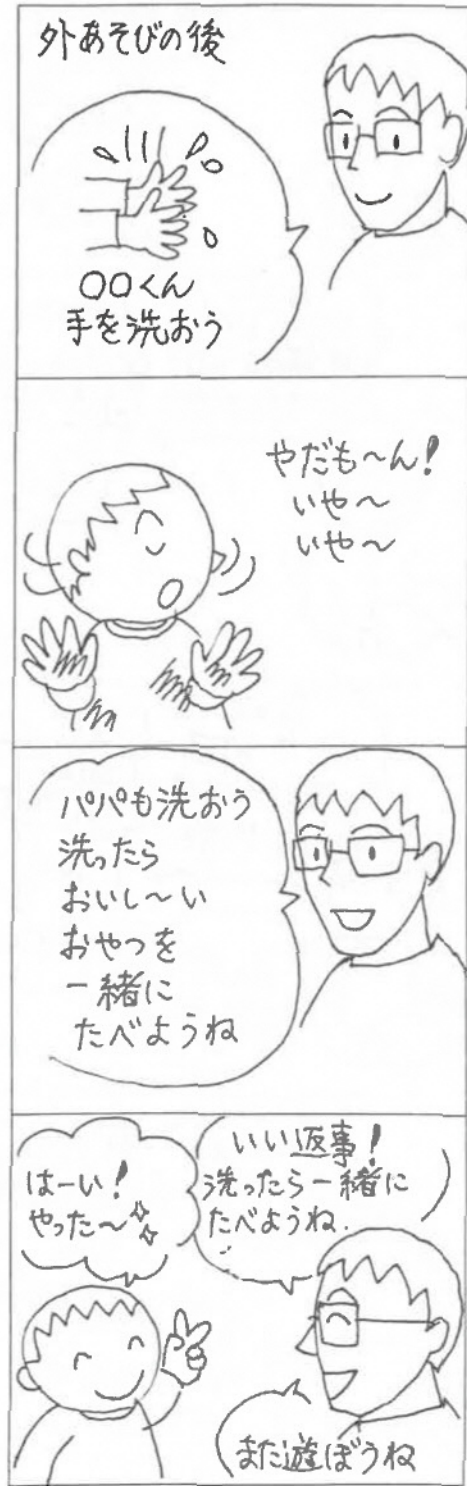 外あそびの後
○○くん
手を洗おう
やだも～ん!
いや～
いや～
パパも洗おう
洗ったら
おいし～い
おやつを
一緒に
たべようね
いい返事!
洗ったら一緒に
たべようね.
はーい!
やった～
また遊ぼうね